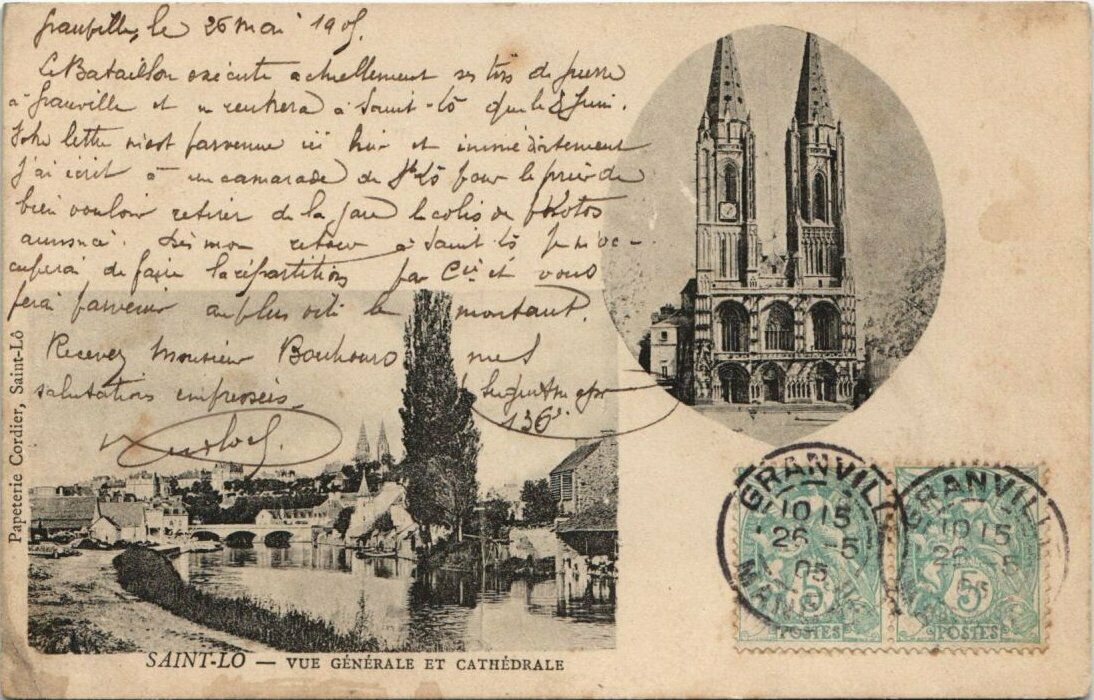 Granville, le 26 mai 1905.
Le Bataillon exécute actuellement ses tirs de guerre
à Granville et ne rentrera à Saint-Lô que le 2 Juin.
Votre lettre m'est parvenue ici hier et immédiatement
J'ai écrit à un camarade de St Lô pour le prier de
bien vouloir retirer de la gare le colis de photos
annoncé. Dès mon retour à Saint-Lô je m'oc-
cuperai de faire la répartition par Cie et vous
ferai parvenir au plus vite le montant.
Recevez Monsieur mes
salutations empressées
136e
Papeterie Cordier, Saint-Lô
SAINT-LO — VUE GÉNÉRALE ET CATHÉDRALE
GRANVILLE
10 15
26 -5
05
MANCHE
5c
POSTES
GRANVILLE
10 15
26 -5
5c
POSTES